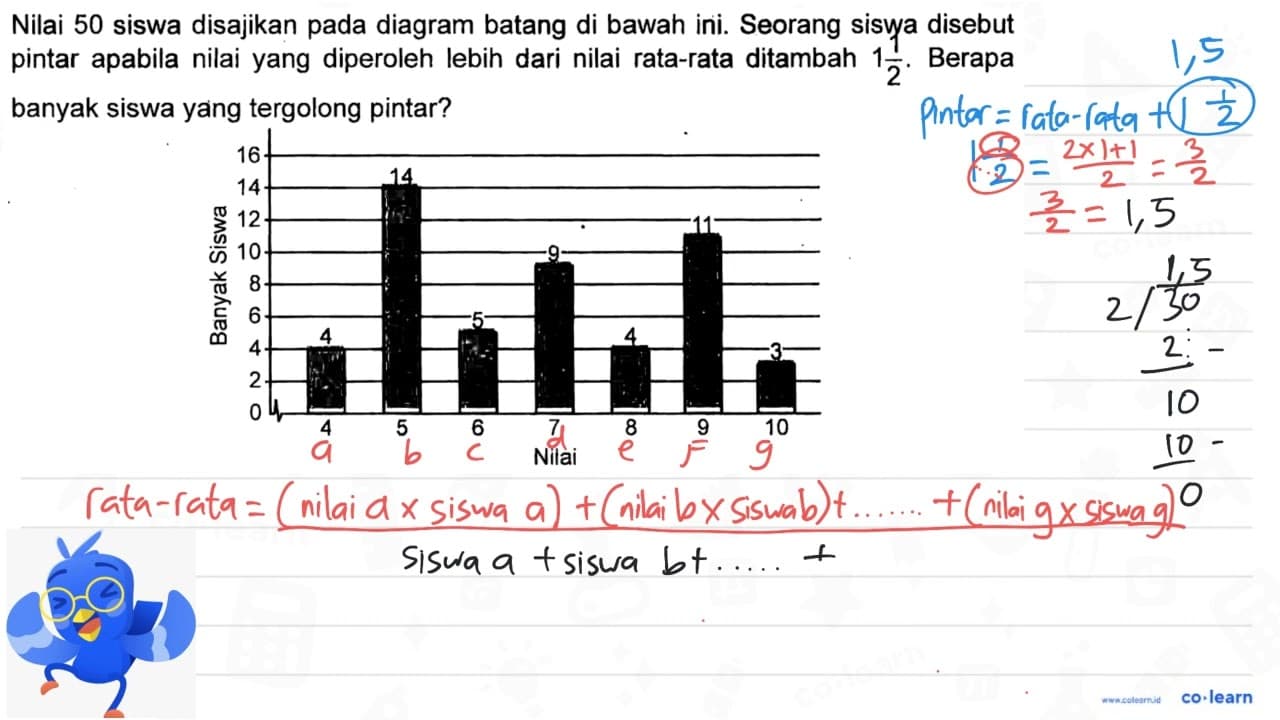 Nilai 50 siswa disajikan pada diagram batang di bawah ini. Seorang siswa disebut
pintar apabila nilai yang diperoleh lebih dari nilai rata-rata ditambah 1 1/2. Berapa
banyak siswa yang tergolong pintar?
1,5
Pintar = rata-rata + 1 1/2
1 1/2 = 2x1+1/2 = 3/2
3/2 = 1,5
1,5
2/30
2 -
10
10 -
0
Banyak Siswa
16
14
12
10
8
6
4
2
0
4 14 5 9 4 11 3
4 5 6 7 8 9 10
a b c d e F g
Nilai
rata-rata = (nilai a x siswa a) + (nilai b x siswa b) + ....... + (nilai g x siswa g)
siswa a + siswa b + ..... +
www.colearn.id co·learn